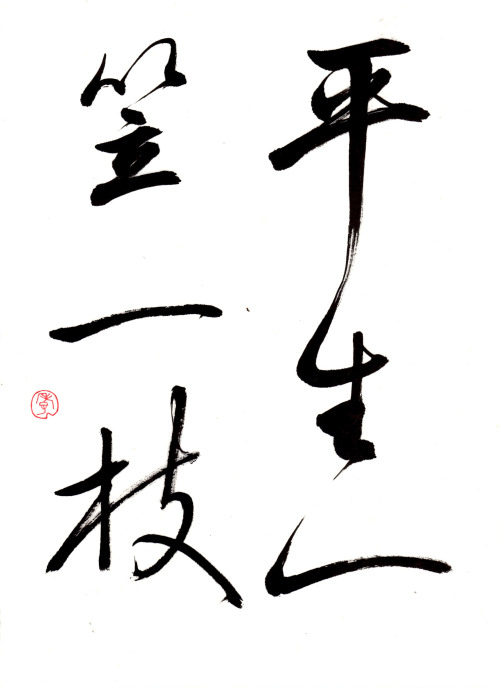 平生一
笠一枝